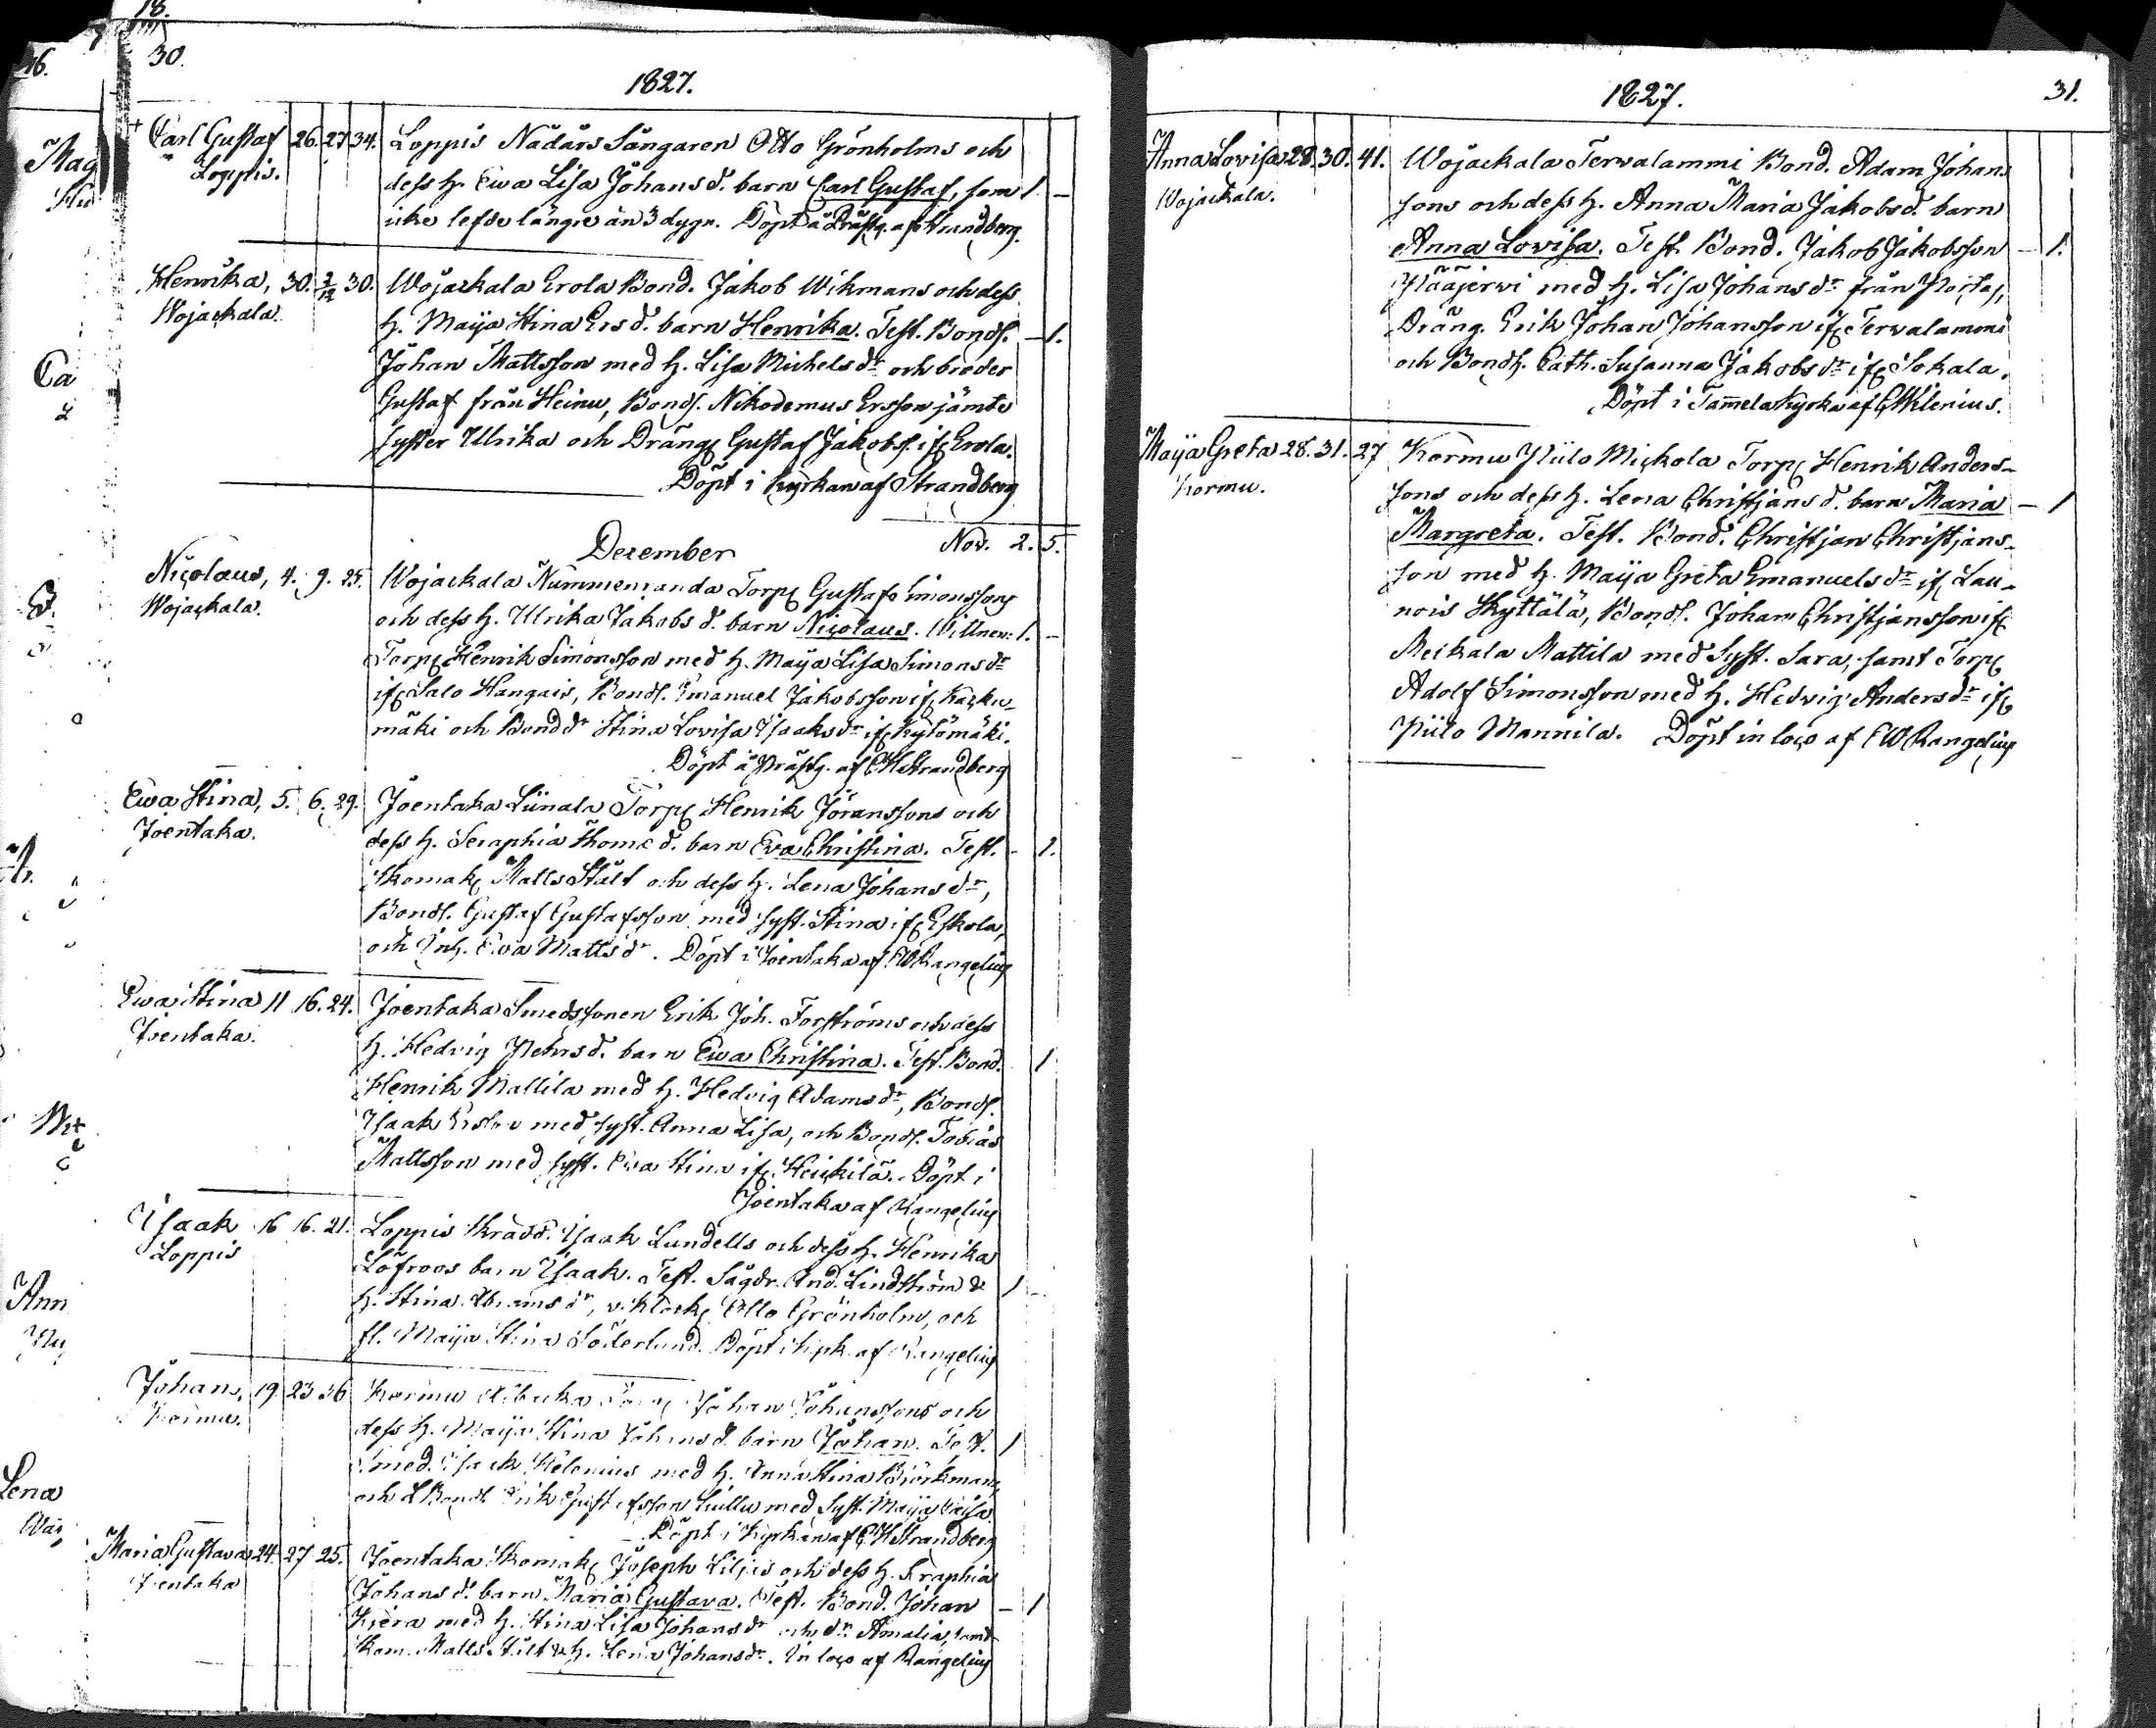 18.
30.
1827.
+ Carl Gustaf 26. 27 34. Loppis Nådårs Sångaren Otto Grönholms och
Loppis. dess h. Ewa Lisa Johans d. barn Carl Gustaf, som 1. –
icke lefde längre än 3 dygn. Döpt å Prästg. af Strandberg.
Henrika, 30. 2/12 30. Wojackala Erola Bond. Jakob Wikmans och dess
Wojackala. h. Maija Stina Ers d. barn Henrika. Test. Bonds. – 1.
Johan Mattsson med h. Lisa Michels dr och broder
Gustaf från Heinu, Bonds. Nikodemus Ersson jämte
syster Ulrika och Dräng Gustaf Jakobs. if. Erola.
Döpt i kyrkan af Strandberg
Nov. 2. 5.
December
Nicolaus, 4. 9. 25. Wojackala Nummenranda Torp. Gustaf Simonssons
Wojackala. och dess h. Ulrika Jakobs d. barn Nicolaus. Wittnen: 1. –
Torp. Henrik Simonsson med h. Maija Lisa Simons dr
if. Salo Hangais, Bonds. Emanuel Jakobsson if.
mäki och Bond dr Stina Lovisa Isaaks dr if. Kylömäki.
Döpt å Prästg. af CH Strandberg
Ewa Stina, 5. 6. 29. Joentaka Liinala Torp. Henrik Jöranssons och
Joentaka. dess h. Seraphia Thome d. barn Eva Christina. Test. – 1.
Skomak. Matts Stålt och dess h. Lena Johans dr,
Bonds. Gustaf Gustafsson med syst. Stina if. Eskola,
och Inh. Eva Matts dr. Döpt i Joentaka af FW Rangelius
Ewa Stina 11 16. 24. Joentaka Smedssonen Erik Joh. Forströms och dess
Joentaka. h. Hedvig Petters d. barn Ewa Christina. Test. Bond. 1
Henrik Mattila med h. Hedvig Adams dr, Bonds.
Isaak med syst. Anna Lisa, och Bonds. Tobias
Mattsson med syst. Eva Stina if. Heikkilä. Döpt i
Joentaka af Rangelius
Isaak 16 16. 21. Loppis Skrädd. Isaak Lundells och dess h. Henrika
Loppis Löfroos barn Isaak. Test. And. Lindström & 1 –
h. Stina Abrams dr, v. Klock. Otto Grönholm, och
fl. Maija Stina Söderlund. Döpt i af Rangelius
Johan, 19. 23 36 Kormu Johan Johanssons och
Kormu. dess h. Maija Stina Johans d. barn Johan. Test. 1
Smed. Isack Helenius med h. Anna Stina Björkman,
och Bonds. Erik Gustafsson med Syst. Maija Caisa.
Döpt i Kyrkan af CH Strandberg
Maria Gustava 24. 27 25. Joentaka Skomak. Joseph Liljes och dess h. Seraphia
Joentaka Johans d. barn Maria Gustava. Test. Bond. Johan – 1
med h. Stina Lisa Johans dr och dr. Amalia, samt
Skom. Matts Stålt & h. Lena Johans dr. In loco af Rangelius
1827.
31.
Anna Lovisa 28. 30. 41. Wojackala Terwalammi Bond. Adam Johans
Wojackala. sons och dess h. Anna Maria Jakobs d. barn
Anna Lovisa. Test. Bond. Jakob Jakobsson – 1.
Pääjerwi med h. Lisa Johans dr från Portas,
Dräng. Erik Johan Johansson if. Terwalammi
och Bondh. Cath. Susanna Jakobs dr if. Sokala.
Döpt i Tammela Kyrka af
Maija Greta 28. 31. 27 Kormu Piilo Mickola Torp. Henrik Anders-
Kormu. sons och dess h. Lena Christjans d. barn Maria – 1
Margreta. Test. Bond. Christjan Christjans-
son med h. Maija Greta Emanuels dr if. Lau-
nois Skyttälä, Bonds. Johan Christjansson if.
Meikala Mattila med Syst. Sara, samt Torp.
Adolf Simonsson med h. Hedvig Anders dr if.
Piilo Mannila. Döpt in loco af FW Rangelius